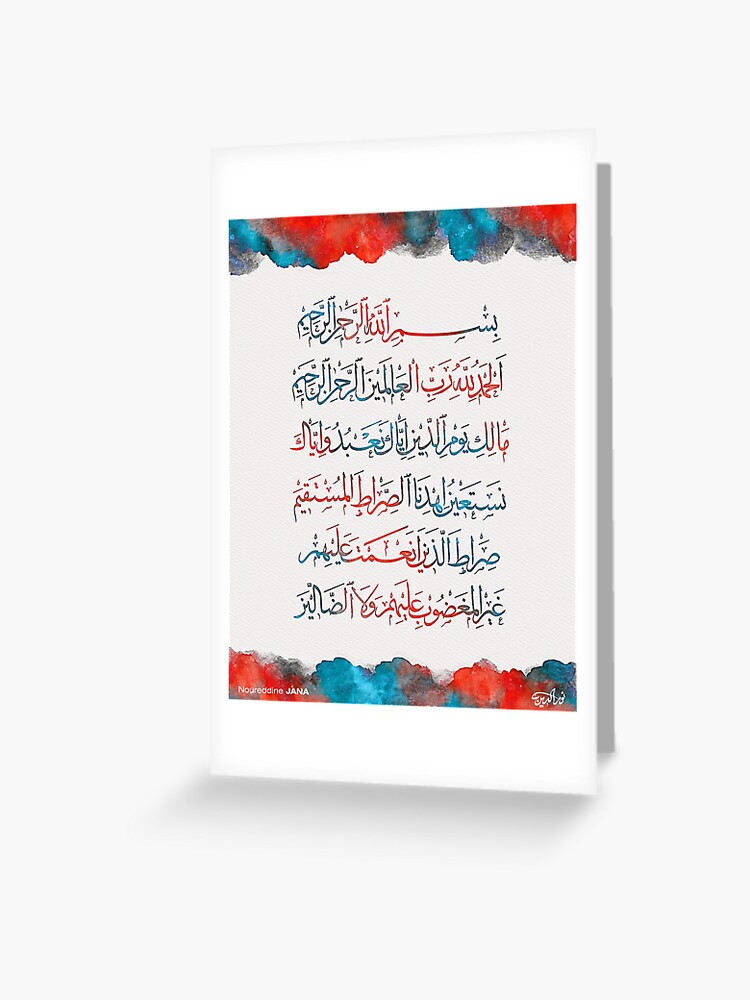 بِسْمِ ٱللَّهِ ٱلرَّحْمَٰنِ ٱلرَّحِيمِ
ٱلْحَمْدُ لِلَّهِ رَبِّ ٱلْعَالَمِينَ ٱلرَّحْمَٰنِ ٱلرَّحِيمِ
مَالِكِ يَوْمِ ٱلدِّينِ إِيَّاكَ نَعْبُدُ وَإِيَّاكَ
نَسْتَعِينُ ٱهْدِنَا ٱلصِّرَاطَ ٱلْمُسْتَقِيمَ
صِرَاطَ ٱلَّذِينَ أَنْعَمْتَ عَلَيْهِمْ
غَيْرِ ٱلْمَغْضُوبِ عَلَيْهِمْ وَلَا ٱلضَّالِّينَ
Noureddine JANA
نورالدين